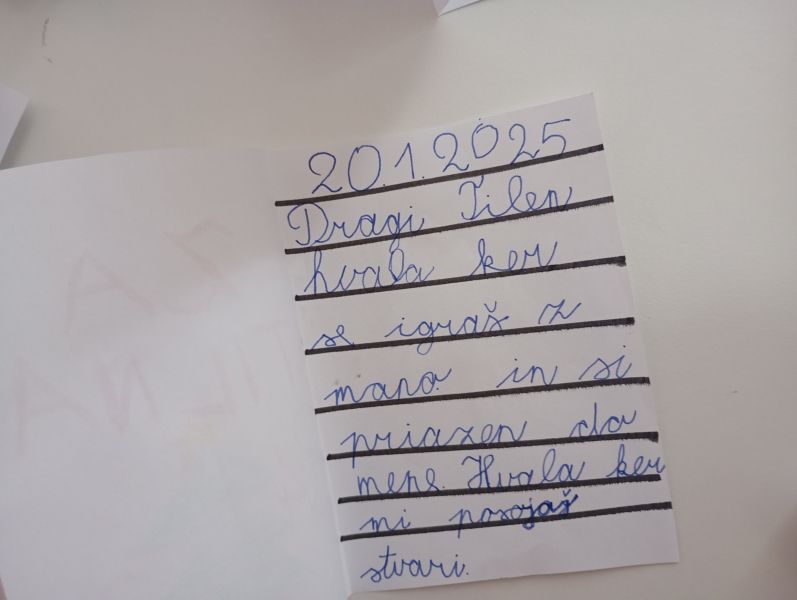 20.1.2025
Dragi Tilen
hvala ker
se igraš z
mano in si
priazen do
mene. Hvala ker
mi posojaš
stvari.